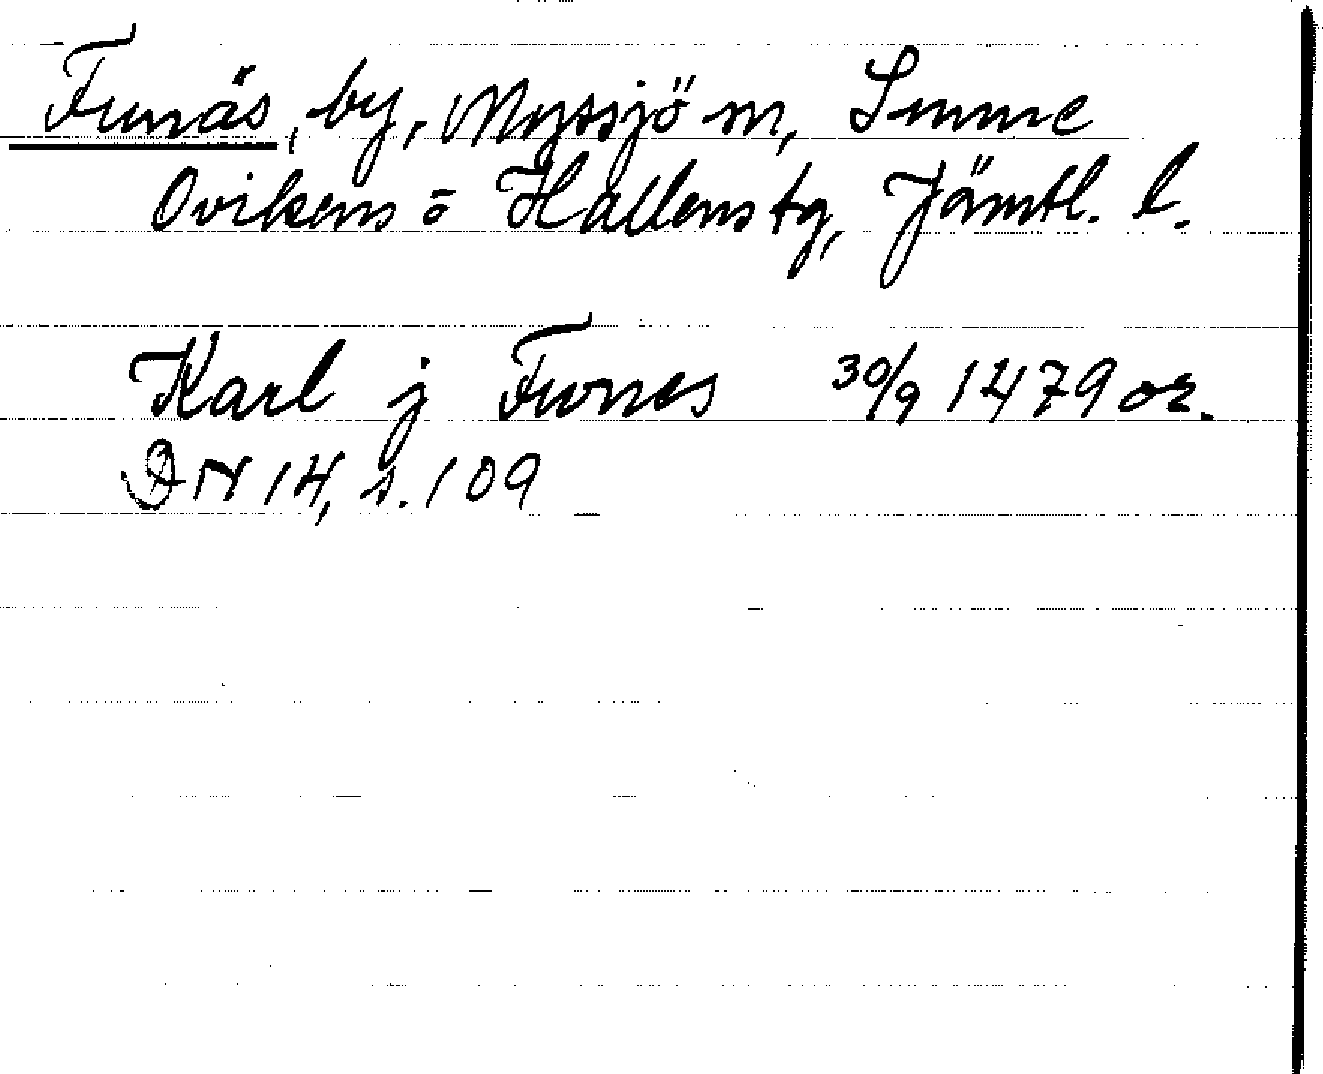 Funäs, by, Myssjö sn, Sunne
Ovikens o Hallens tg, Jämtl. l.
Karl j Funes 30/9 1479 or.
DN 14, s. 109